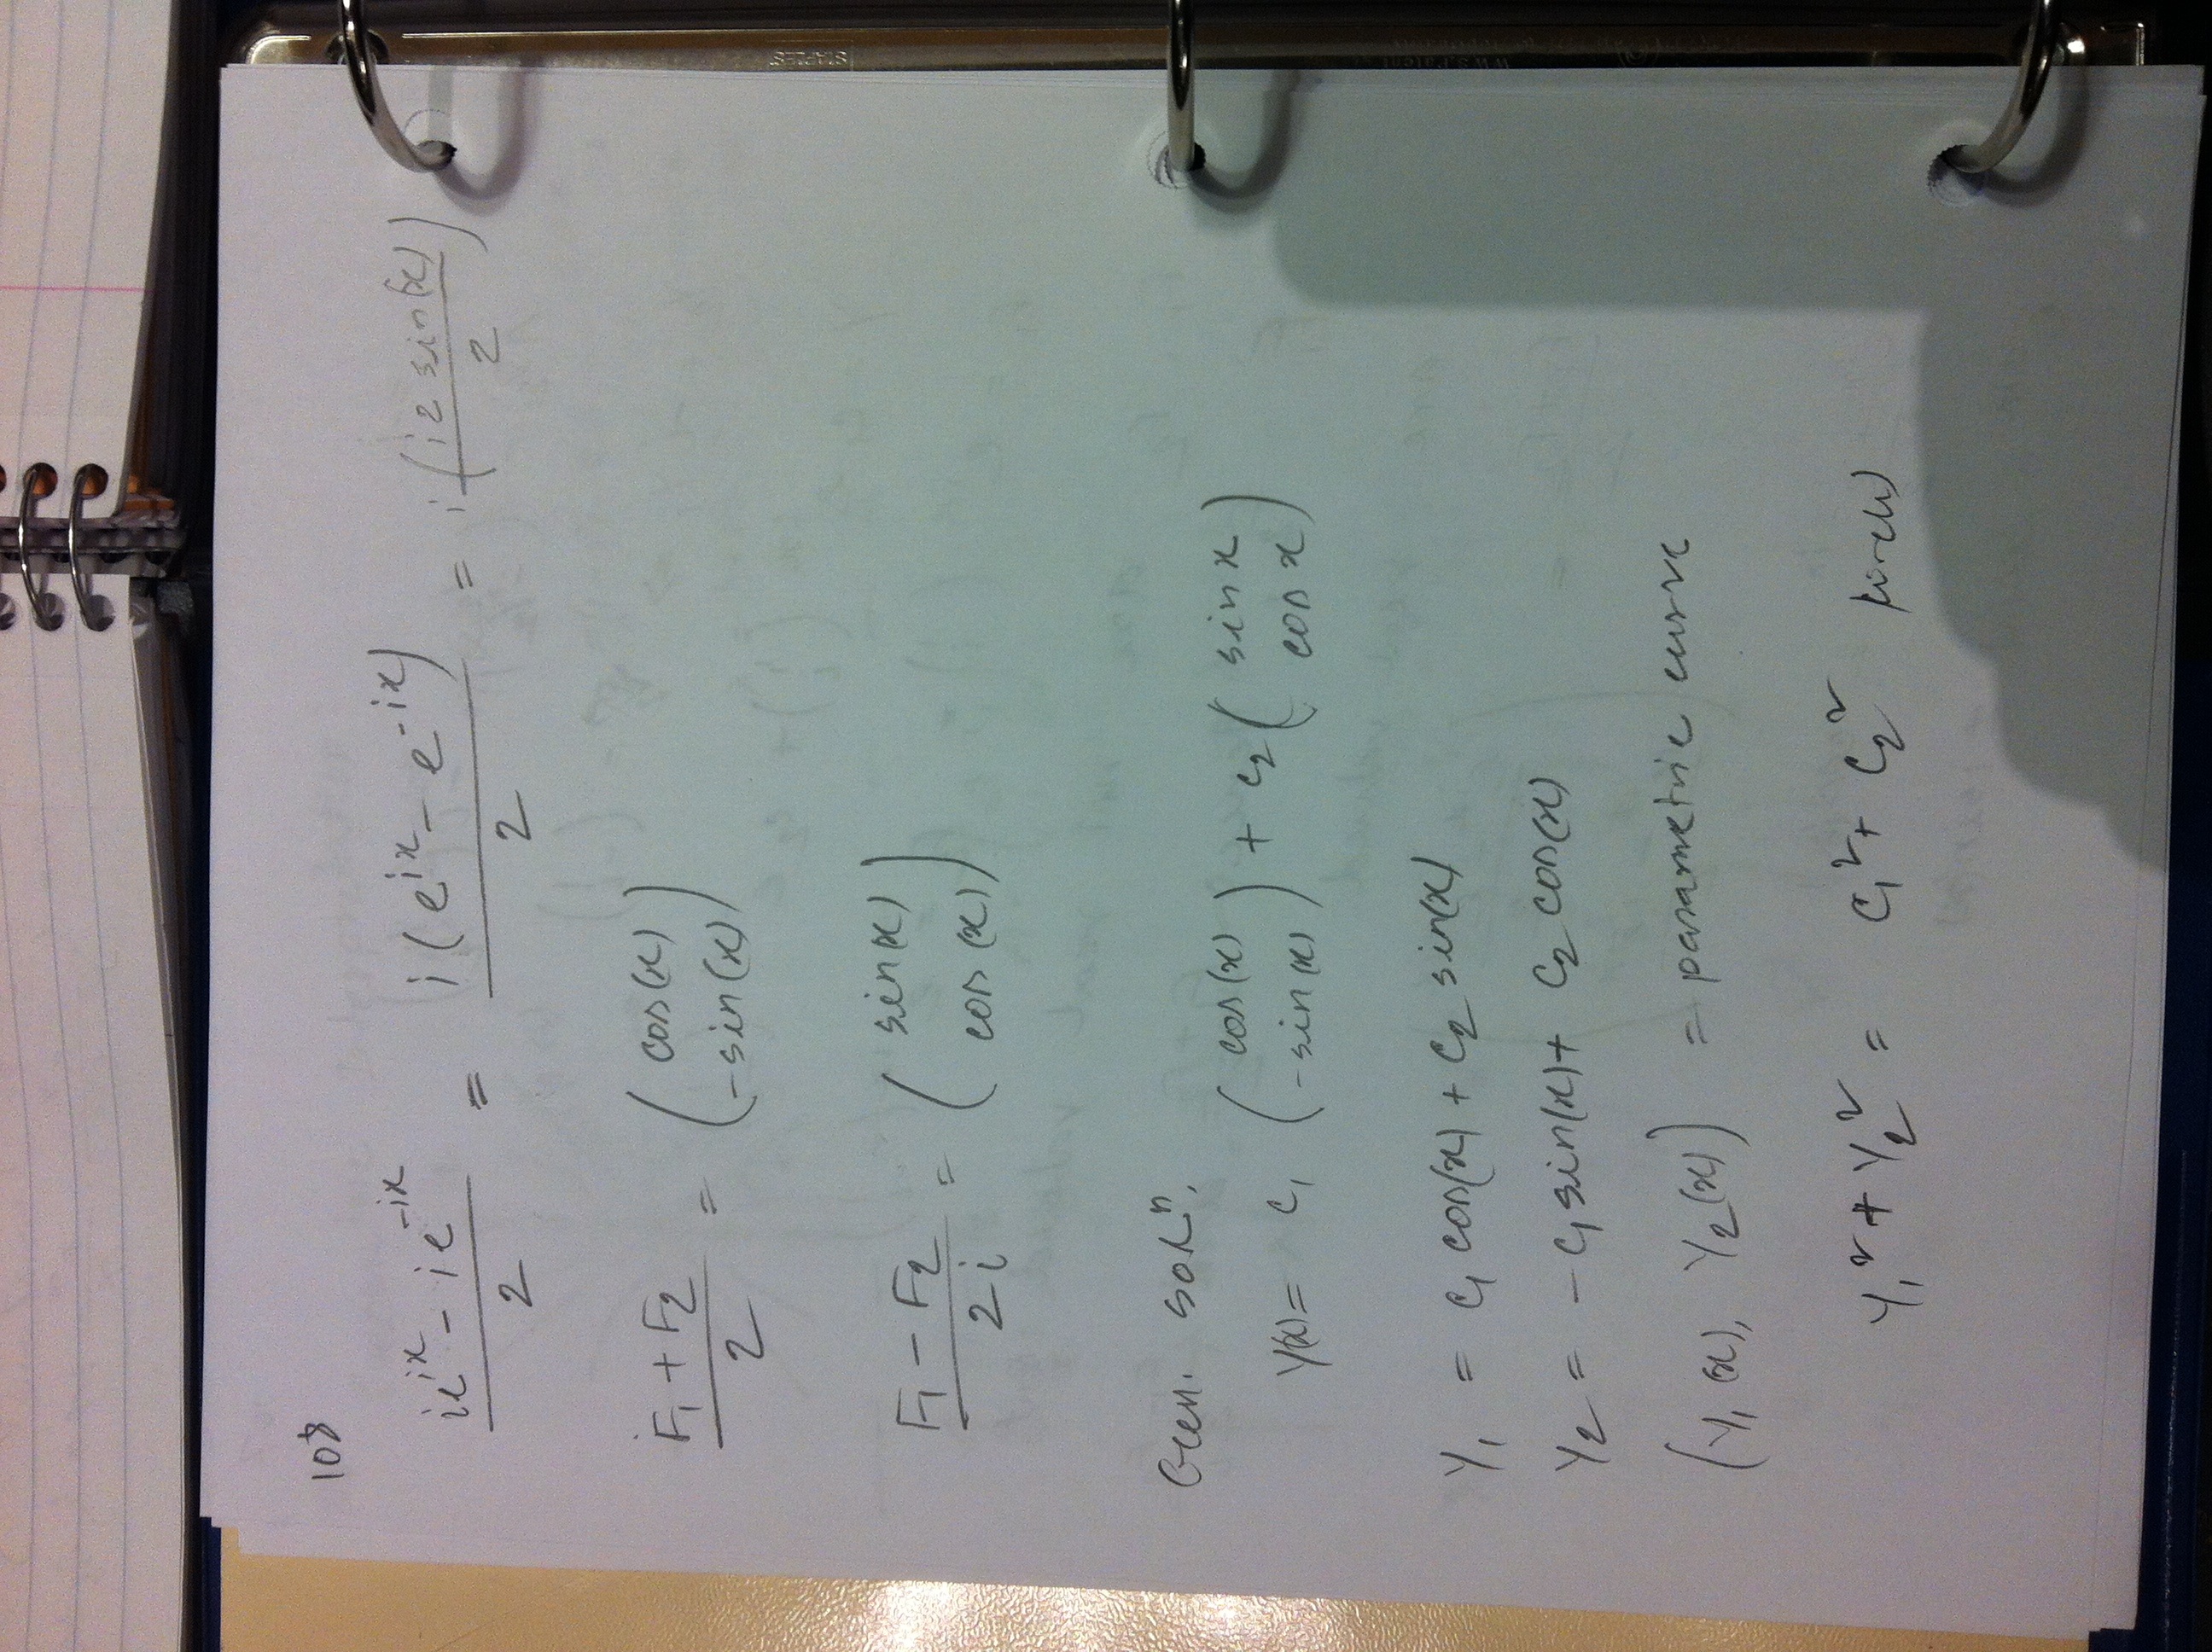 108
ie^{ix} - ie^{-ix} / 2 = i(e^{ix} - e^{-ix}) / 2 = i(i2 sin(x) / 2)
F₁ + F₂ / 2 = (cos(x) / -sin(x))
F₁ - F₂ / 2i = (sin(x) / cos(x))
Gen. solⁿ.
Y(x) = c₁ (cos(x) / -sin(x)) + c₂ (sin x / cos x)
Y₁ = c₁ cos(x) + c₂ sin(x)
Y₂ = - c₁ sin(x) + c₂ cos(x)
(Y₁(x), Y₂(x)) = parametric curve
Y₁² + Y₂² = c₁² + c₂²
STAPLES